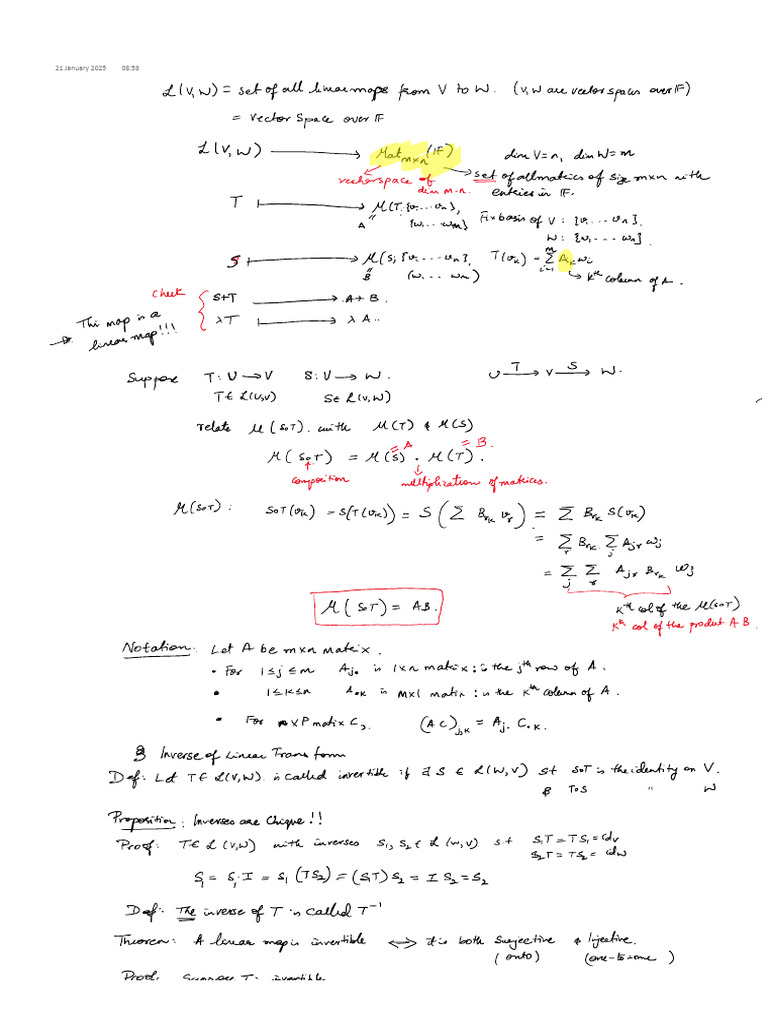 21 January 2025 08:58
L(V,W) = set of all linear maps from V to W. (V,W are vector spaces over F)
= Vector Space over F
L(V,W) ⟶ Mat_{m×n}(F) dim V=n, dim W=m
vector space of dim m·n. set of all matrices of size m×n with
entries in F.
T ⟼ M(T; {v₁ ... vₙ}, Fix basis of V : {v₁ ... vₙ}.
A {w₁ ... wₘ}) W : {w₁ ... wₙ}.
S ⟼ M(S; {v₁ ... vₙ}, T(v_k) = Σ_{i=1}^{m} A_k w_i
B {w₁ ... wₘ}) kth column of A.
Check S+T ⟶ A+B.
λT ⟼ λA..
This map is a
linear map!!!
Suppose T: U ⟶ V S: V ⟶ W. U —T→ V —S→ W.
T ∈ L(U,V) S ∈ L(V,W)
relate M(S∘T). with M(T) & M(S)
M(S∘T) = M(S) · M(T). = A = B.
composition multiplization of matrices.
M(S∘T) : S∘T(v_k) = S(T(v_k)) = S(Σ B_{rk} v_r) = Σ B_{rk} S(v_k)
= Σ_r B_{rk}. Σ_j A_{jr} w_j
= Σ_j Σ_r A_{jr} B_{rk} w_j
kth col of the M(S∘T)
kth col of the product AB.
M(S∘T) = AB.
Notation: Let A be m×n matrix.
• For 1≤j≤m A_{j•} is 1×n matrix : is the jth row of A.
• 1≤k≤n A_{•k} is m×1 matrix : is the kth column of A.
• For n×P matrix C, (AC)_{j,k} = A_{j•} C_{•k}.
§ Inverse of Linear Transform
Def: Let T∈ L(V,W) is called invertible if ∃ S ∈ L(W,V) st S∘T is the identity on V.
& T∘S " W
Proposition: Inverses are Unique!!
Proof: T∈ L(V,W) with inverses S₁, S₂ ∈ L(W,V) s.t S₁T = TS₁ = id_V
S₂T = TS₂ = id_W
S₁ = S₁·I = S₁(TS₂) = (S₁T)S₂ = I S₂ = S₂
Def: The inverse of T is called T⁻¹
Theorem: A linear map is invertible ⟺ it is both Surjective & Injective.
(onto) (one-to-one)
Proof: Suppose T is invertible